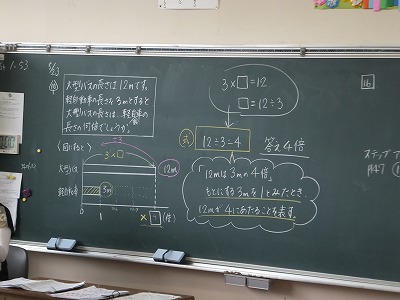 5/23
大型バスの長さは12mです。
軽自動車の長さを3mとすると
大型バスの長さは、軽自動車の
長さの何倍でしょうか。
3×□=12
□=12÷3
式
12÷3=4
答え4倍
÷3
3×□
大型バス
12m
軽自動車
3m
1
×
(倍)
「12mは3mの4倍」
もとにする3mを1とみたとき、
12mが4にあたることを表す。
16
ステップ
P47